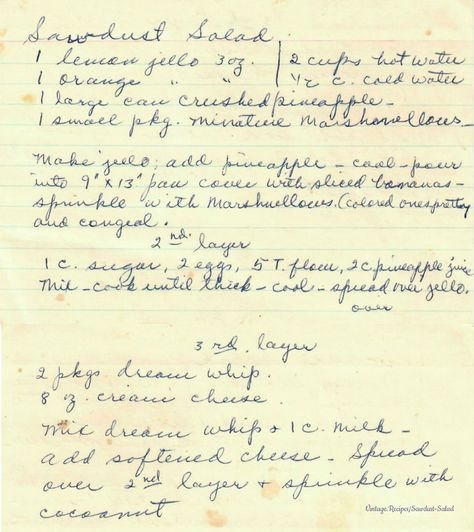 Sawdust Salad.
1 lemon jello 3oz. | 2 cups hot water
1 orange " " | 1/2 c. cold water
1 large can crushed pineapple -
1 small pkg. minature Marshmellows -
Make jello; add pineapple - cool - pour
into 9" x 13" pan cover with sliced bananas -
sprinkle with Marshmellows. (Colored ones pretty
and congeal.
2nd. layer
1 c. sugar, 2 eggs, 5 T. flour, 2 c. pineapple juice
Mix - cook until thick - cool - spread over jello.
over
3rd. layer
2 pkgs dream whip.
8 oz. cream cheese.
Mix dream whip & 1 c. milk -
add softened cheese - Spread
over 2nd layer & sprinkle with
cocoanut
Vintage.Recipes/Sawdust-Salad